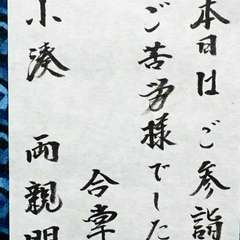 本日はご参詣
ご苦労様でした
合掌
小湊 両親閣